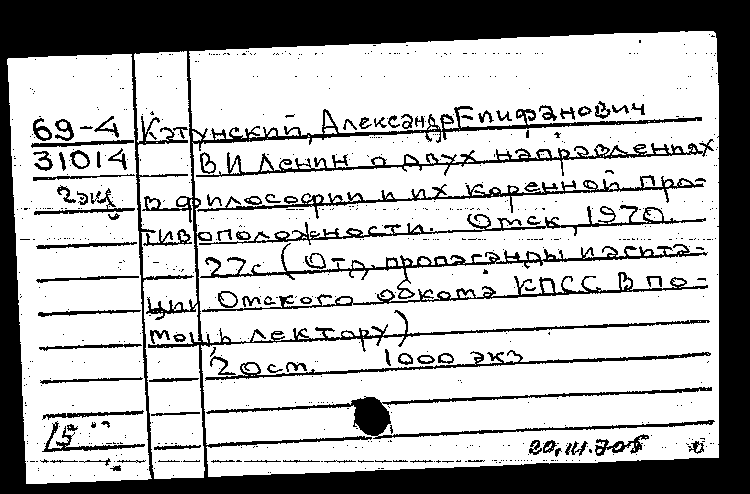 69-4 Кэтунский, Александр Епифанович
31014 В.И Ленин о двух направлениях
2 экз в философии и их коренной про-
тивоположности. Омск, 1970.
27с (Отд. пропаганды и агита-
ции Омского обкома КПСС В по-
мощь лектору)
20 см. 1000 экз
15
20.III.70г